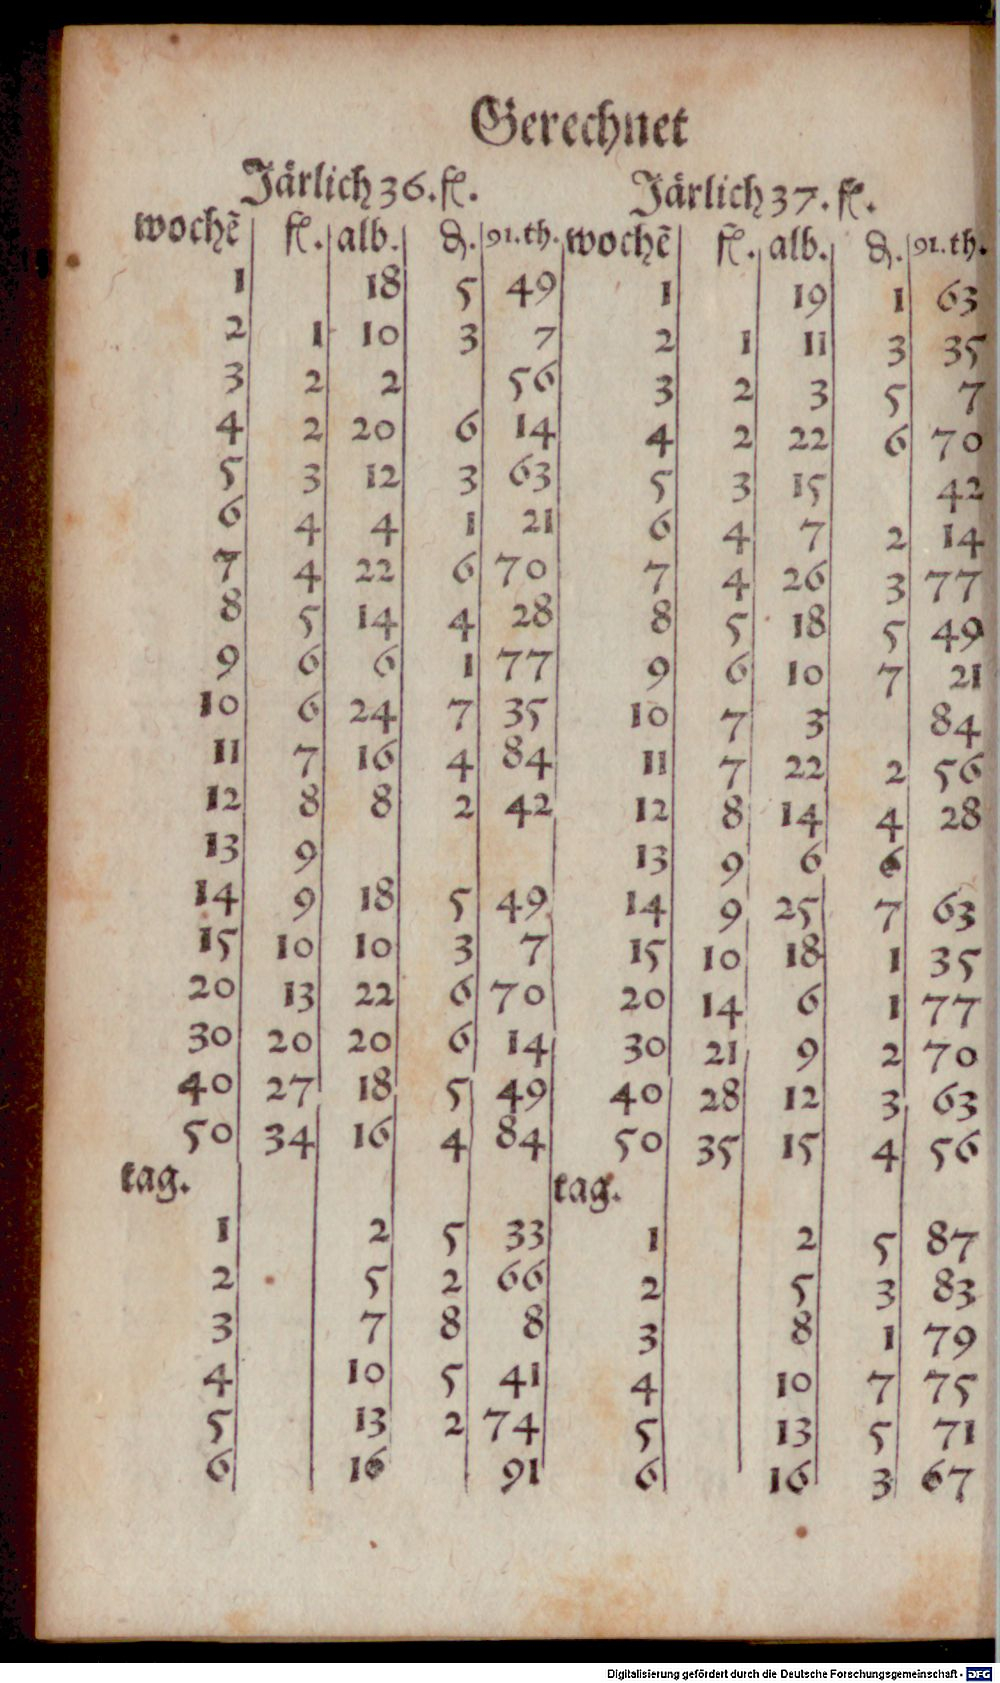 Gerechnet
Järlich 36. fl.
wochẽ fl. alb. ₰. 91. th.
1 18 5 49
2 1 10 3 7
3 2 2 56
4 2 20 6 14
5 3 12 3 63
6 4 4 1 21
7 4 22 6 70
8 5 14 4 28
9 6 6 1 77
10 6 24 7 35
11 7 16 4 84
12 8 8 2 42
13 9
14 9 18 5 49
15 10 10 3 7
20 13 22 6 70
30 20 20 6 14
40 27 18 5 49
50 34 16 4 84
tag.
1 2 5 33
2 5 2 66
3 7 8 8
4 10 5 41
5 13 2 74
6 16 91
Järlich 37. fl.
wochẽ fl. alb. ₰. 91. th.
1 19 1 63
2 1 11 3 35
3 2 3 5 7
4 2 22 6 70
5 3 15 42
6 4 7 2 14
7 4 26 3 77
8 5 18 5 49
9 6 10 7 21
10 7 3 84
11 7 22 2 56
12 8 14 4 28
13 9 6 6
14 9 25 7 63
15 10 18 1 35
20 14 6 1 77
30 21 9 2 70
40 28 12 3 63
50 35 15 4 56
tag.
1 2 5 87
2 5 3 83
3 8 1 79
4 10 7 75
5 13 5 71
6 16 3 67
Digitalisierung gefördert durch die Deutsche Forschungsgemeinschaft - DFG